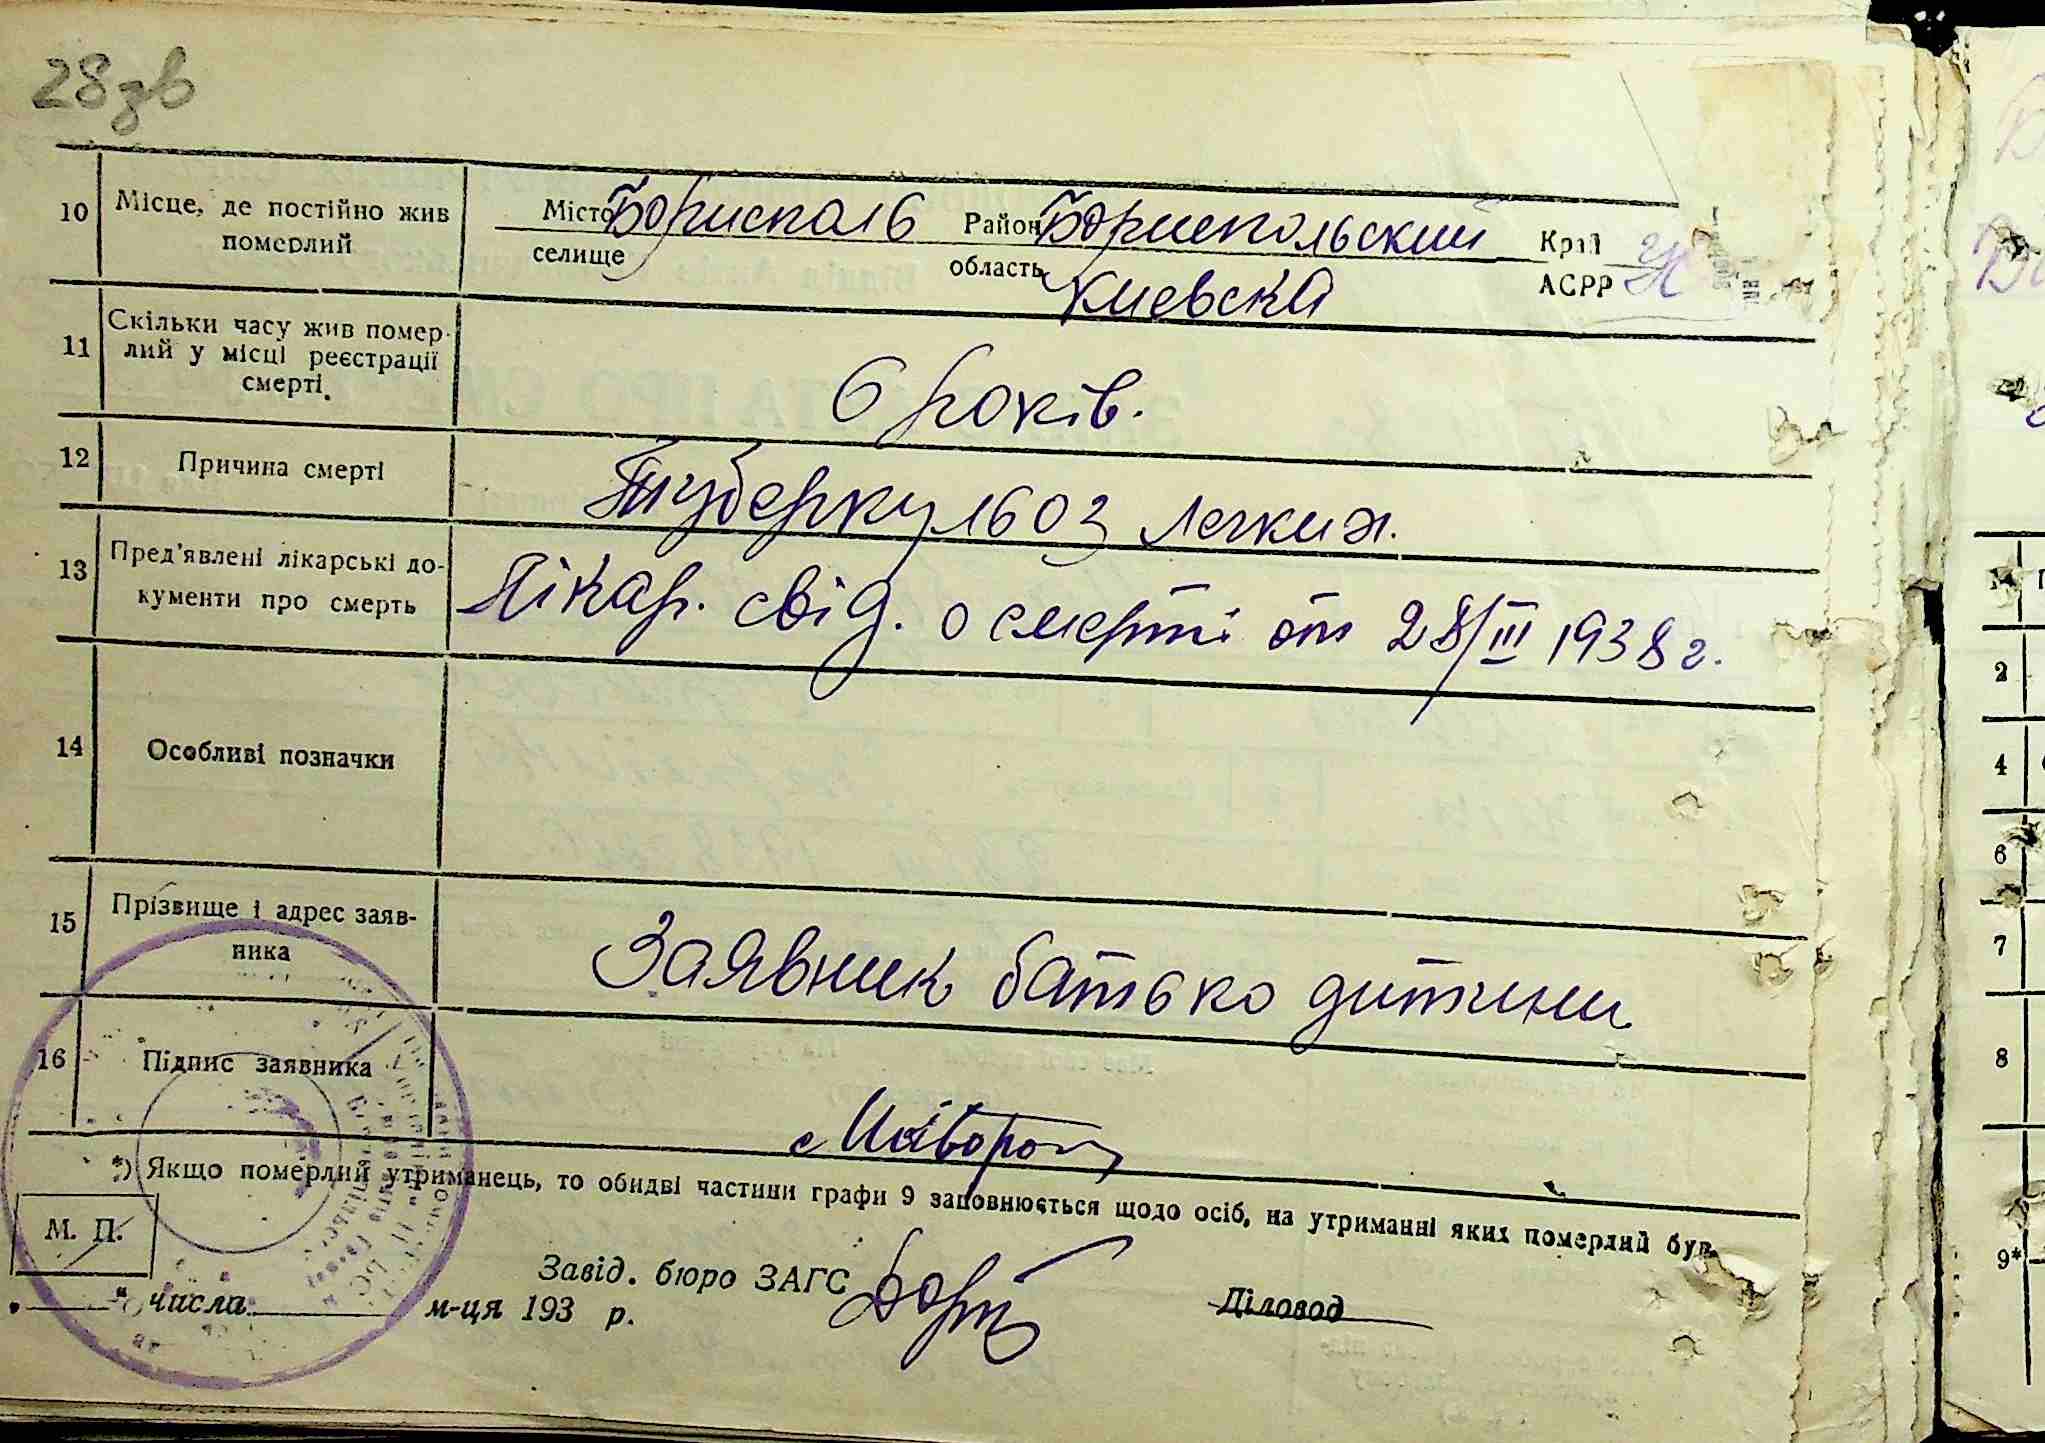 28зв
10 Місце, де постійно жив померлий
Місто Борисполь Район Бориспольский Край
селище область Киевска АСРР
11 Скільки часу жив помер-
лий у місці реєстрації
смерті.
6 років.
12 Причина смерті
Туберкульоз легких.
13 Пред'явлені лікарські до-
кументи про смерть
Лікар. свід. о смерті от 28/III 1938 г.
14 Особливі позначки
15 Прізвище і адрес заяв-
ника
Заявник батько дитини
16 Підпис заявника
*) Якщо померлий утриманець, то обидві частини графи 9 заповнюється щодо осіб, на утриманні яких померлий був.
М. П.
Завід. бюро ЗАГС
Діловод
" " числа м-ця 193 р.
2
4
6
7
8
9*